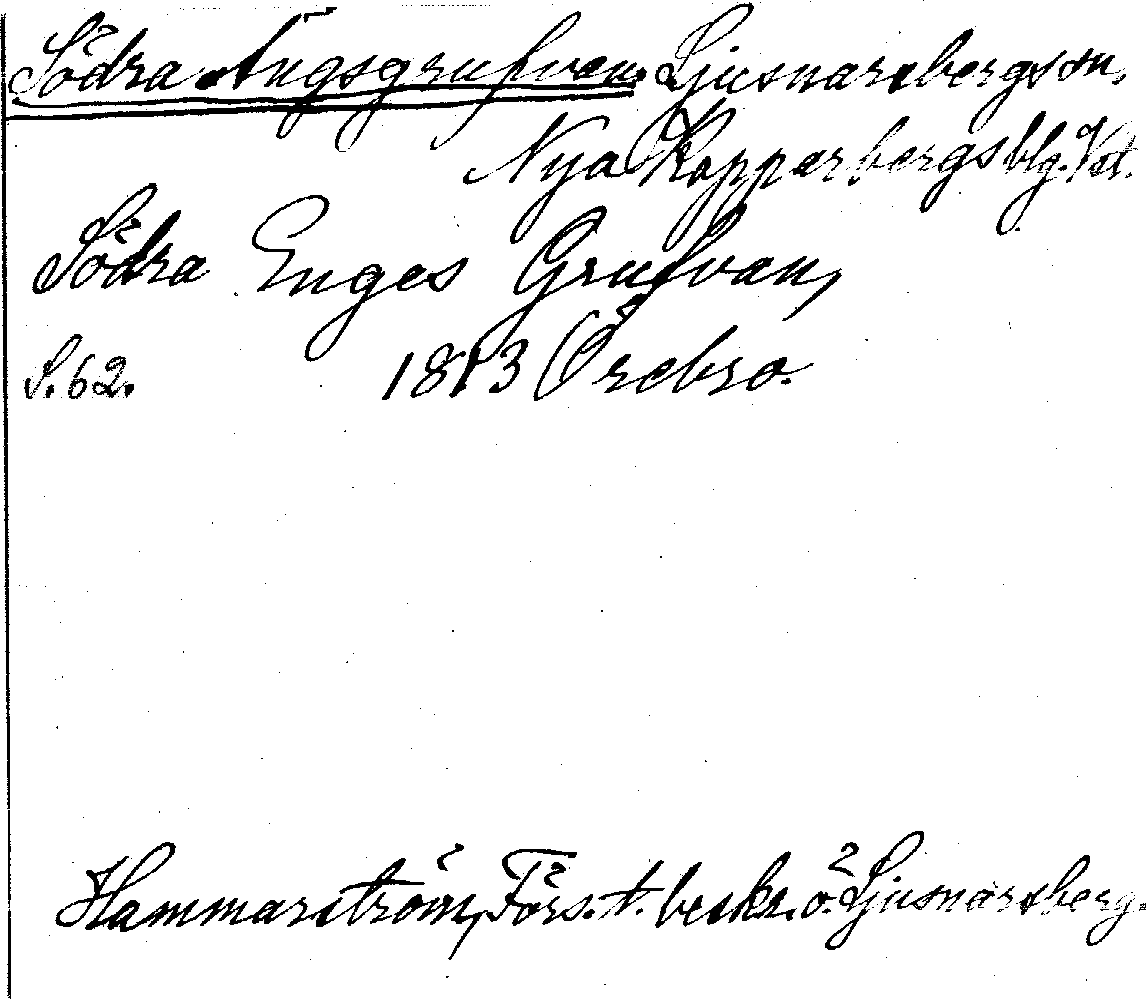 Södra Ängsgrufvan. Ljusnarsbergs sn.
Nya Kopparbergs blg. Vstl.
Södra Enges Grufvan,
S. 62. 1813 Örebro.
Hammarström, Förs. t. beskr. ö. Ljusnarsberg.